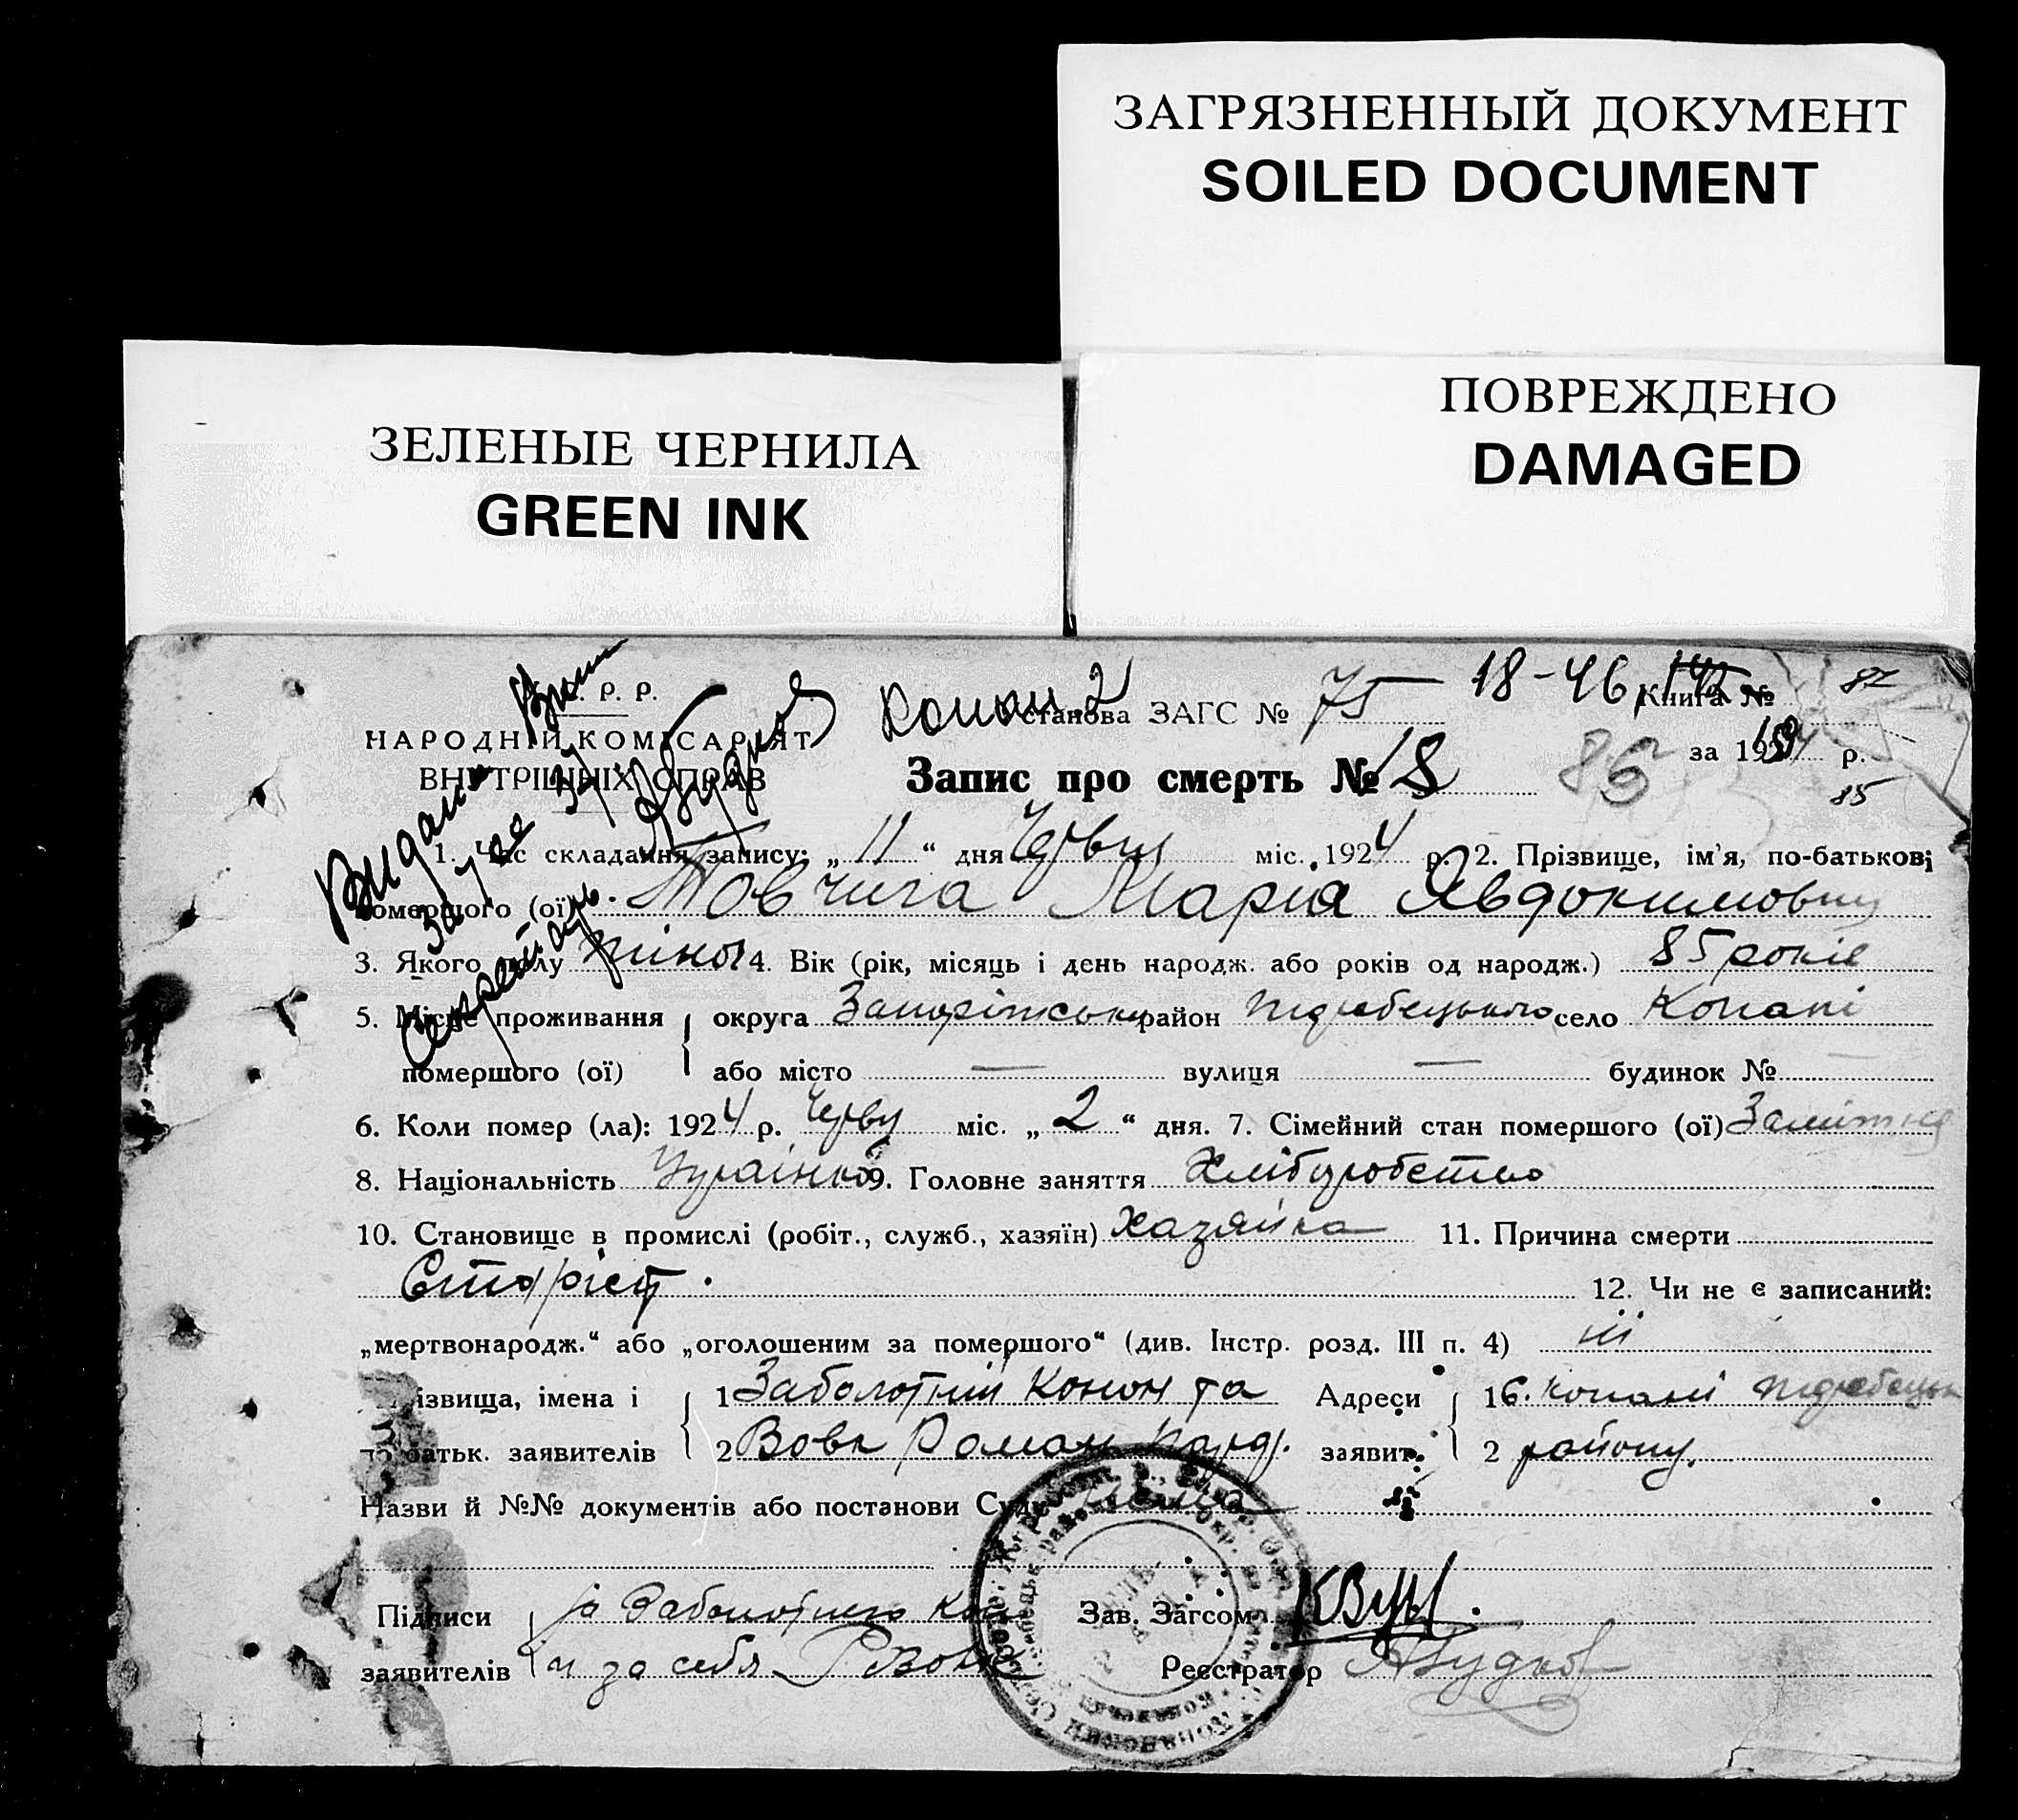 ЗАГРЯЗНЕННЫЙ ДОКУМЕНТ
SOILED DOCUMENT
ПОВРЕЖДЕНО
DAMAGED
ЗЕЛЕНЫЕ ЧЕРНИЛА
GREEN INK
Р. Р.
НАРОДНІЙ КОМІСАРІЯТ
ВНУТРІШНІХ СПРАВ
станова ЗАГС № 75 18-46 Книга № 82
Запис про смерть № 18 86 за 192 р.
85
1. Час складання запису: „11“ дня Червня міс. 1924 р. 2. Прізвище, ім'я, по-батькові
помершого (ої) Товчига Марія Явдокимовна
3. Якого полу жіноч 4. Вік (рік, місяць і день народж. або років од народж.) 85 років
5. Місце проживання округа Запоріжська район село Копані
помершого (ої) або місто — вулиця — будинок №
6. Коли помер (ла): 1924 р. Черв міс. „2“ дня. 7. Сімейний стан помершого (ої) Заміжня
8. Національність Українка 9. Головне заняття Хліборобство
10. Становище в промислі (робіт., служб., хазяїн) Хазяйка 11. Причина смерти
Старість. 12. Чи не є записаний:
„мертвонародж.“ або „оголошеним за помершого“ (див. Інстр. розд. III п. 4) ні
ізвища, імена і 1 Заболотній Конон та Адреси 1 с. Копані
по батьк. заявителів 2 Вовк Роман заявит. 2 району.
Назви й №№ документів або постанови Суду
Підписи за Заболотнего Кон Зав. Загсом
заявителів и за себя РВовк Реєстратор
Видани
Секретарь